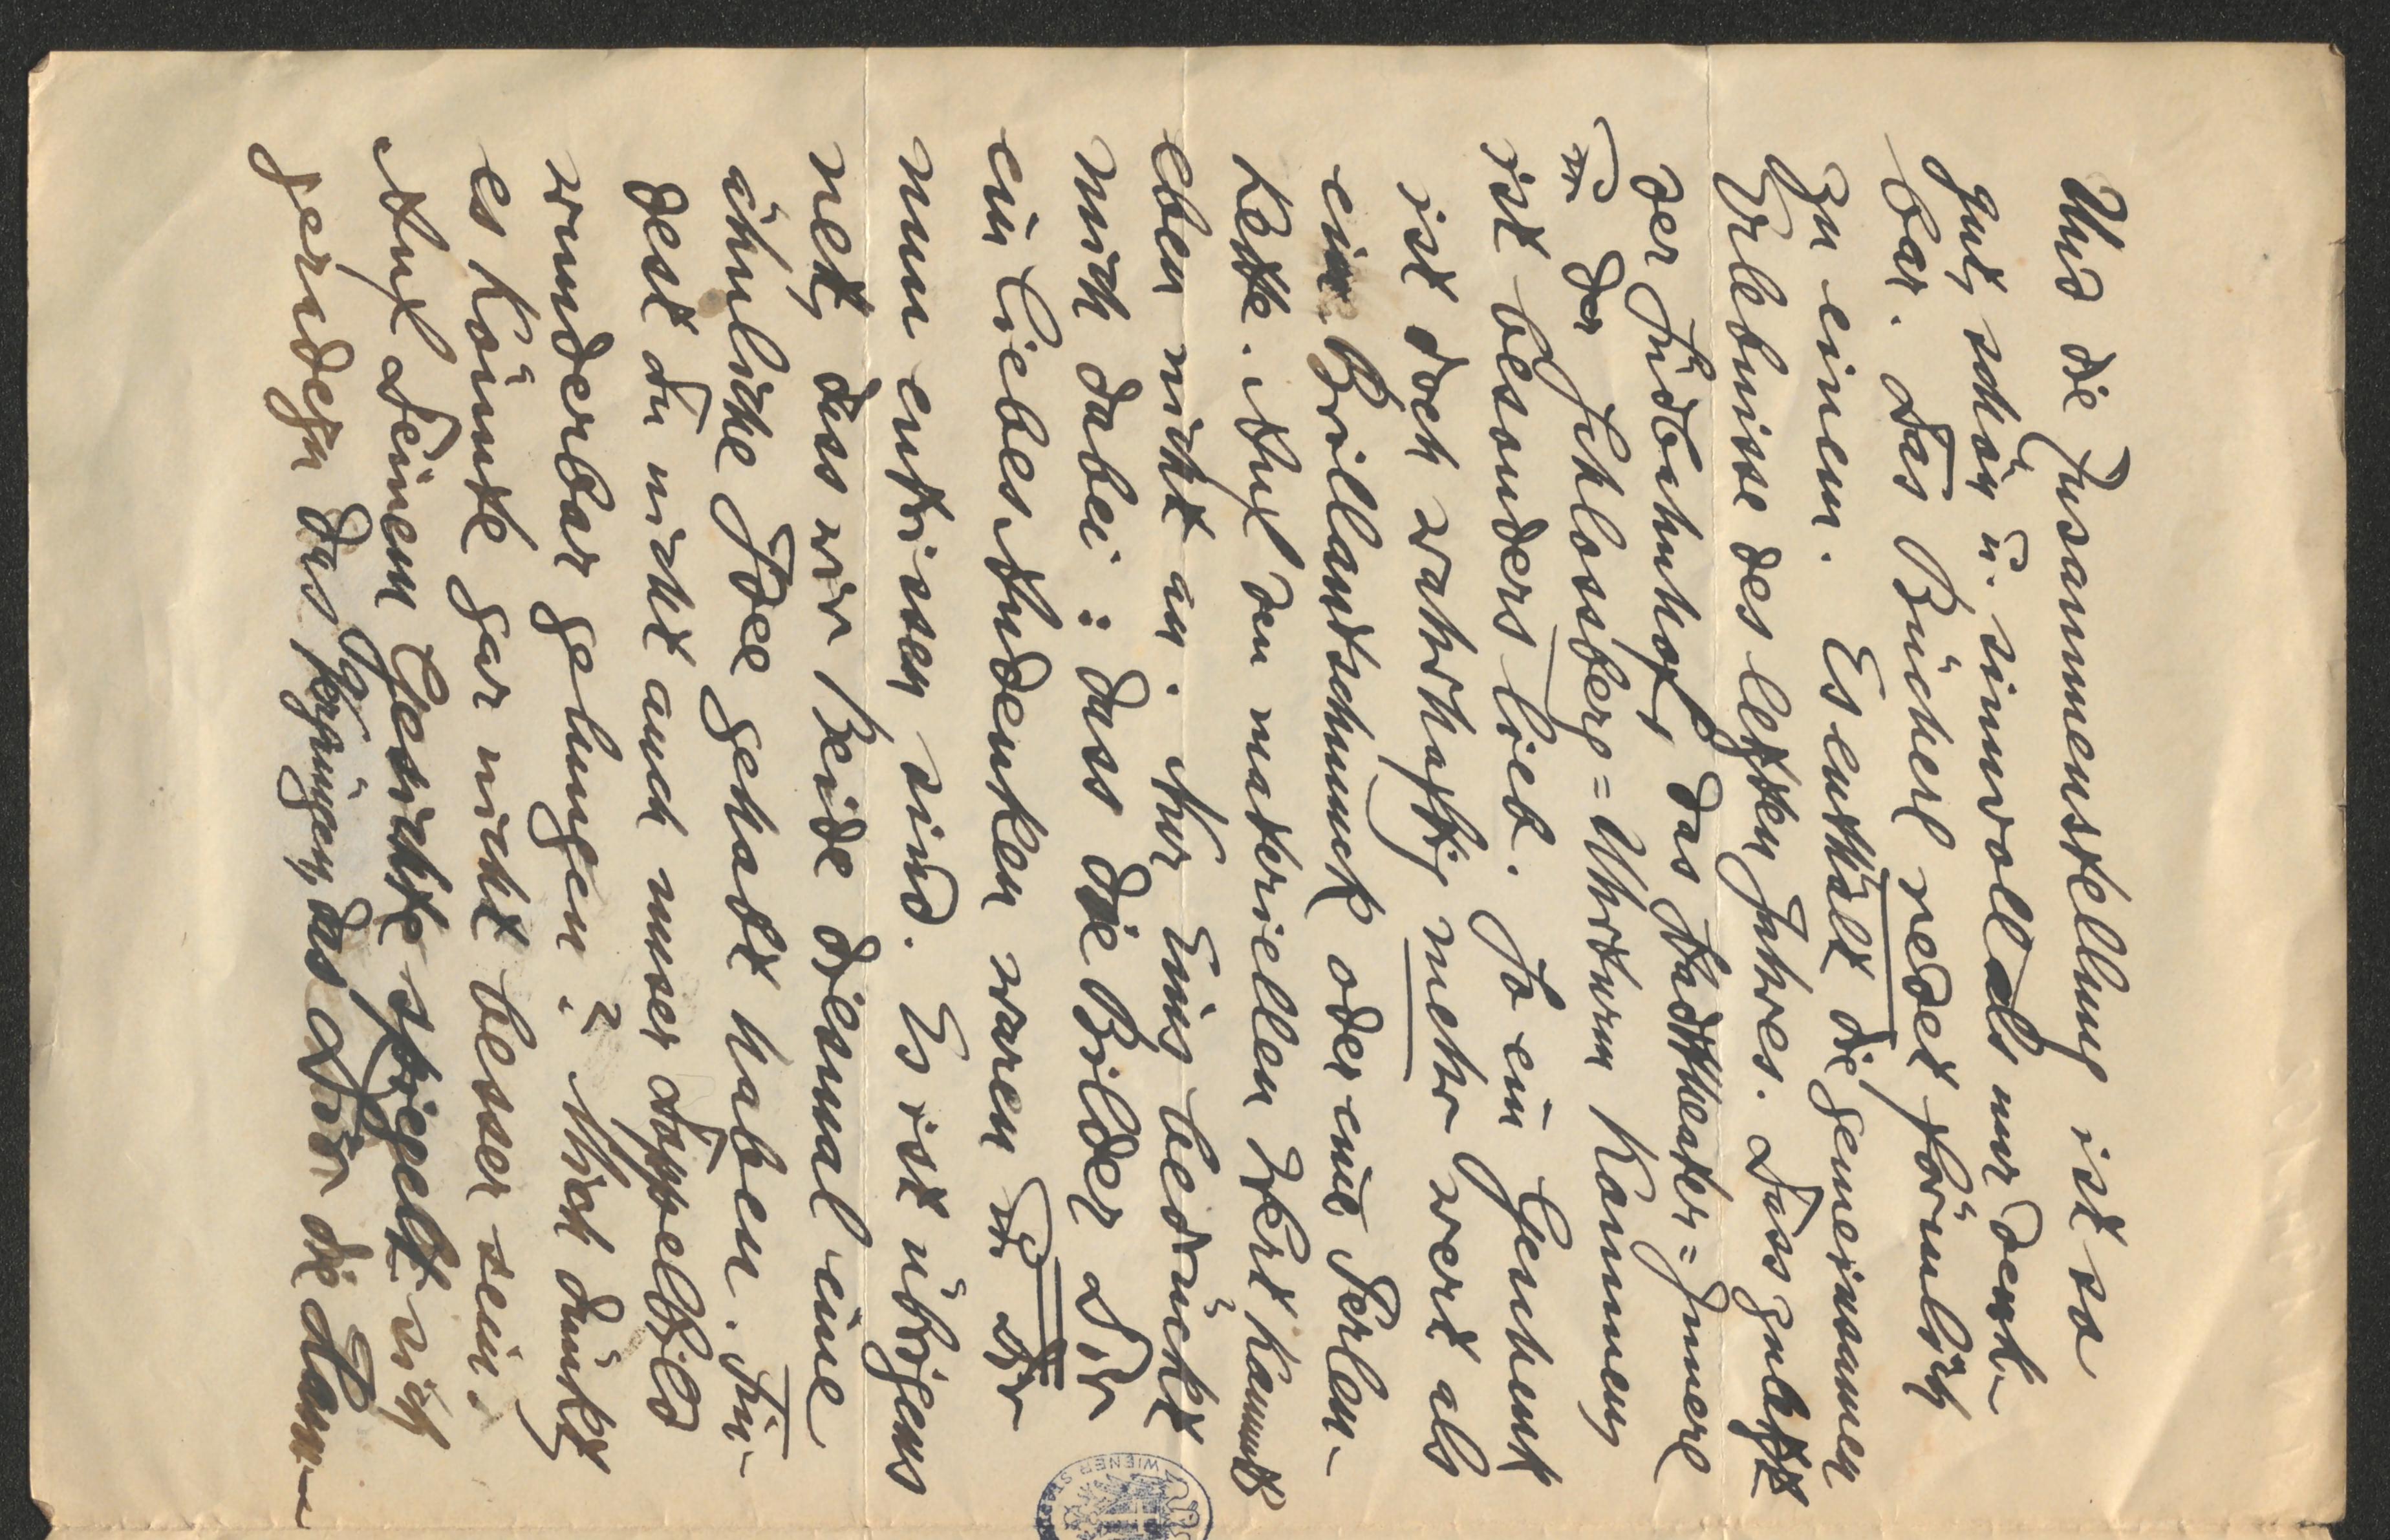 Und die Zusammenstellung ist so
gut, schön u. sinnvoll als nur denk-
bar. Das Bücherl redet förmlich
zu einem. Es enthält die gemeinsamen
Erlebnisse des letzten Jahres. Dass zuletzt
der Südbahnhof, das Stadttheater=Innere
u der Schlossberg=Uhrturm kommen,
ist besonders lieb. So ein Geschenk
ist doch wahrhaftig mehr wert als
ein Brillantschmuck oder eine Perlen-
kette. Auf den materiellen Wert kommts
eben nicht an. Nur Eins bedrückt
mich dabei: dass die Bilder Dir
ein Liebesandenken waren u Dir
nun entrissen sind. Es ist übrigens
nett, dass wir Beide diesmal eine
ähnliche Idee gehabt haben. Fin-
dest Du nicht auch unser Doppelbild
wunderbar gelungen? Mich dünkt
es könnte gar nicht besser sein.
Auf Deinem Gesichte spiegelt sich
geradezu das Vergnügen, das Dir die
WIENER